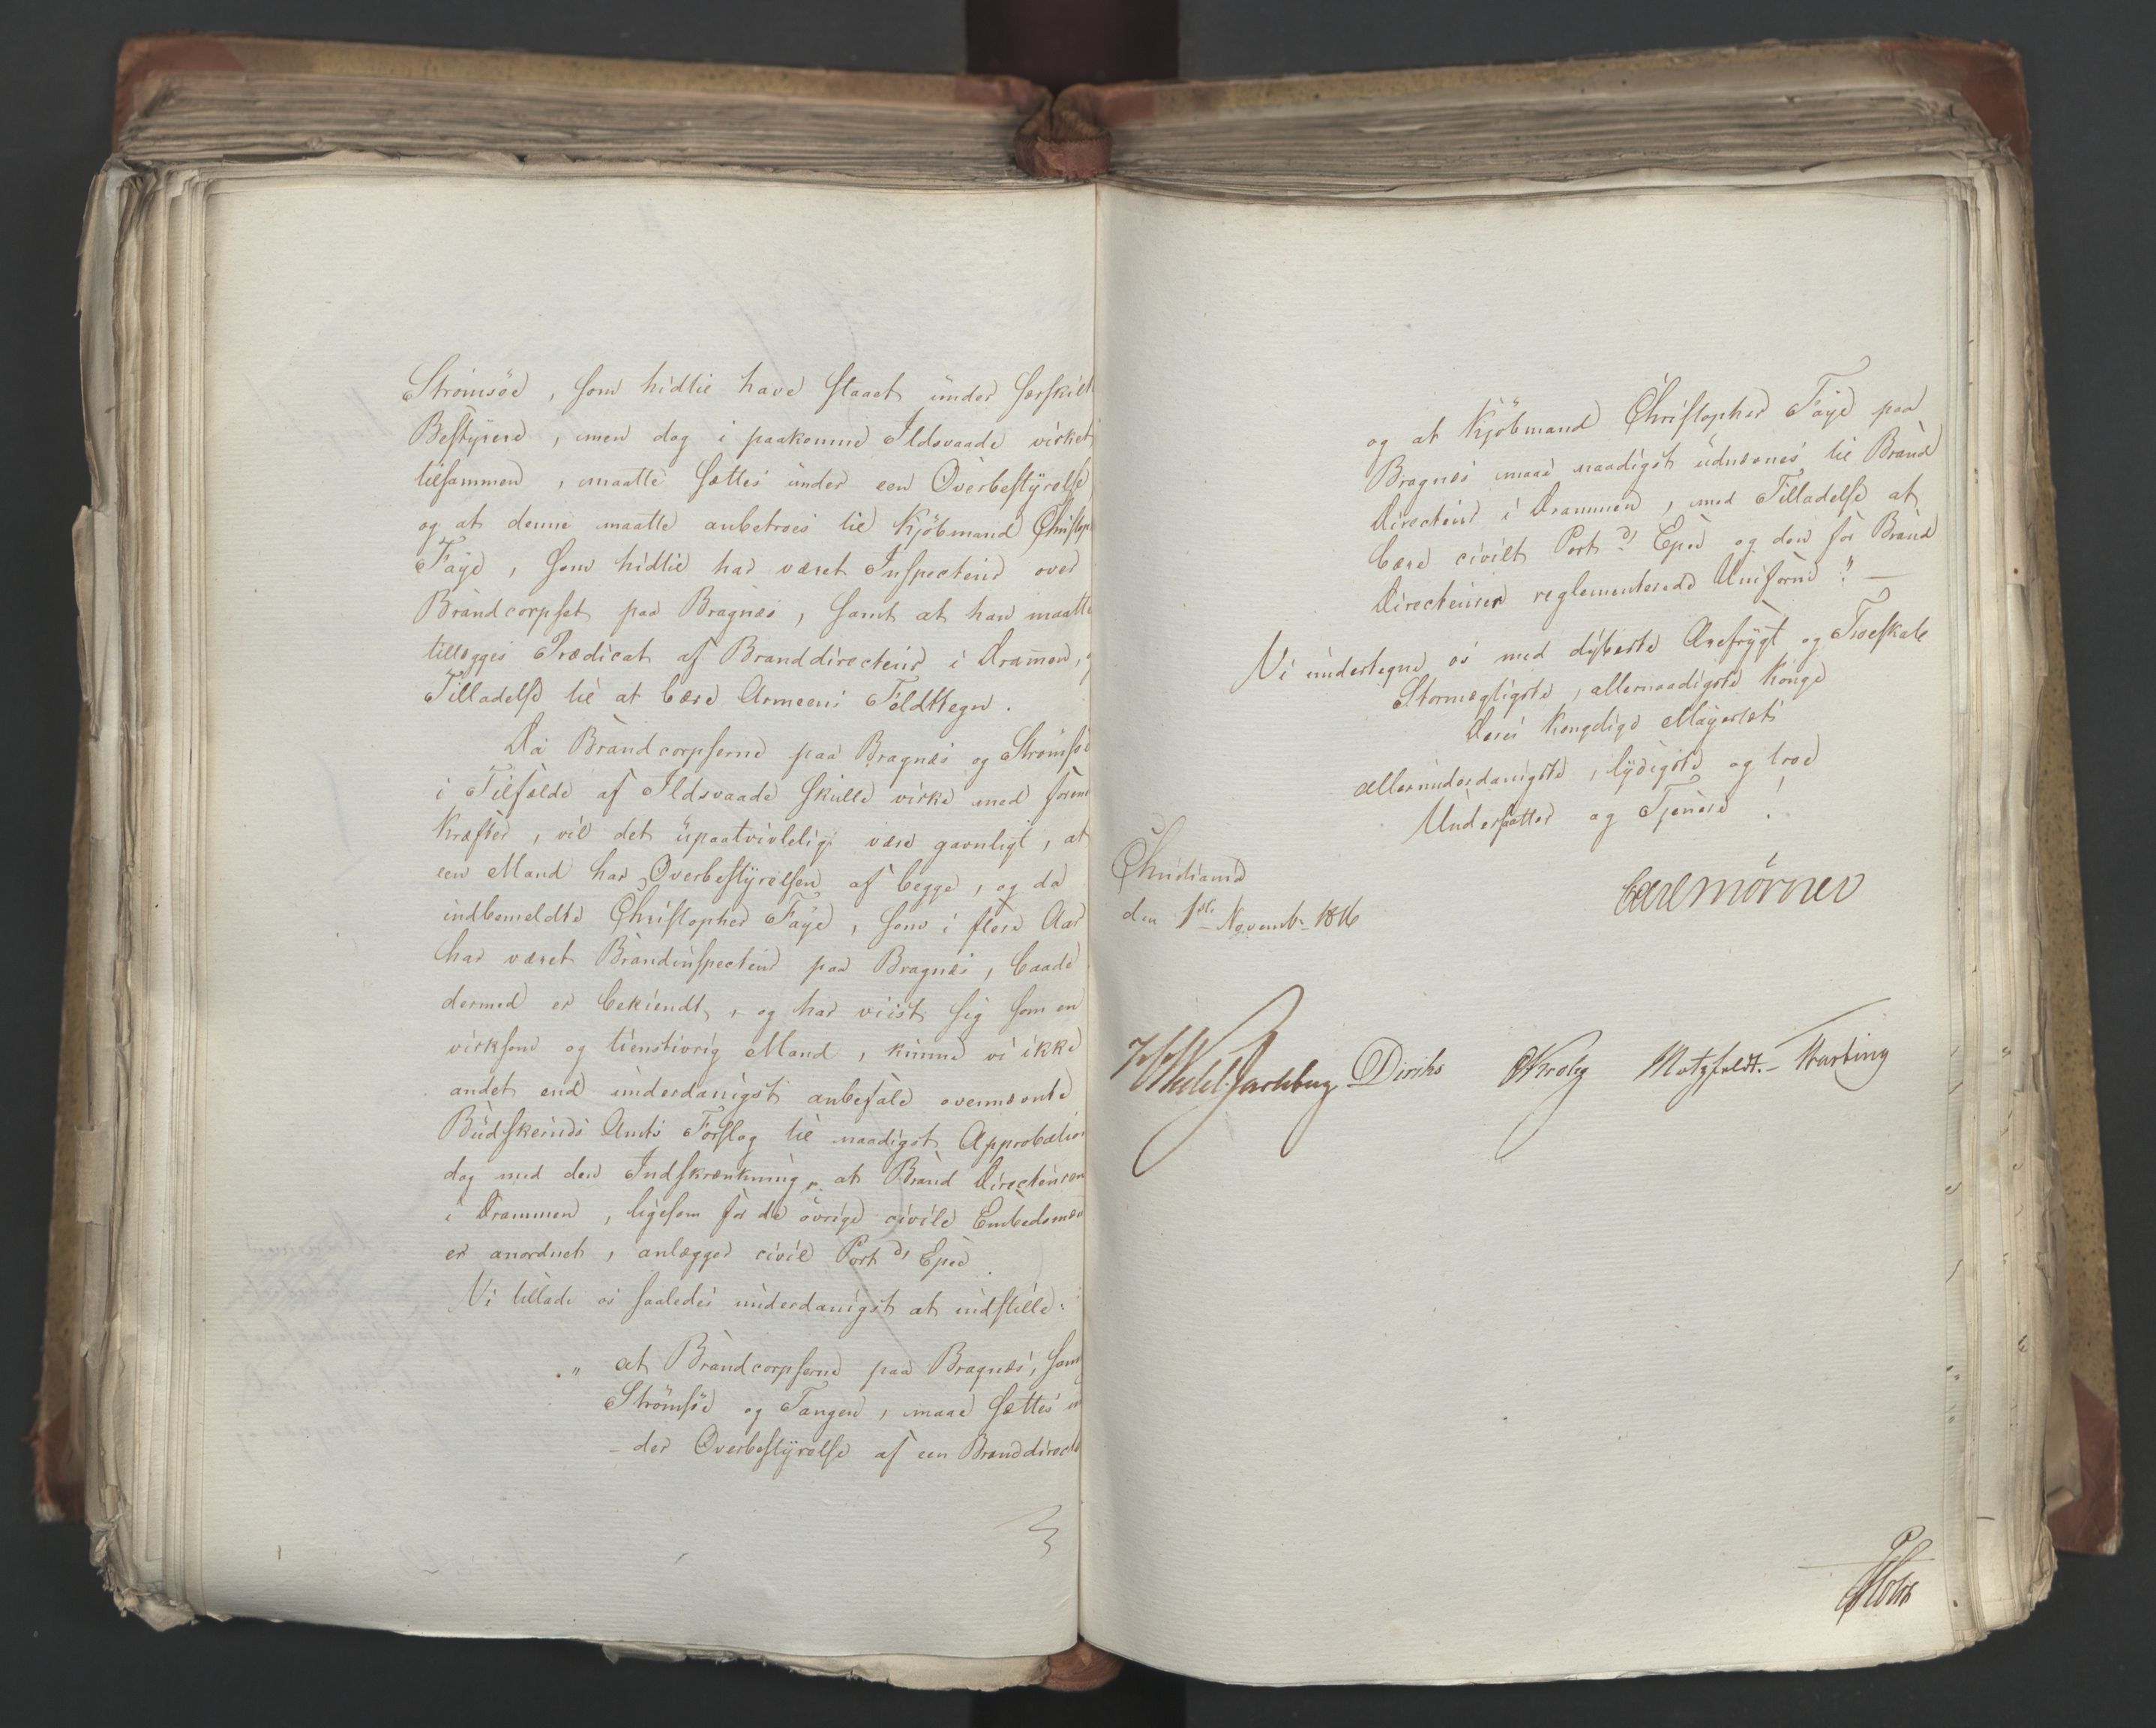 Strømsöe, som hidtil have staaet under særskilt
Bestyrere, men dog i paakomne Ildsvaade virket
tilsammen, maatte sættes under een Overbestyrelse,
og at denne maatte anbetroes til Kjöbmand Christop
Faye, som hidtil har været Inspecteur over
Brandcorpset paa Bragnæs, samt at han maatte
tillægges Prædicat af Branddirecteur i Dramen,
Tilladelse til at bære Armeens Feldttegn.
Da Brandcorpserne paa Bragnæs og Strømsöe
i Tilfælde af Ildsvaade skulle virke med forene
Kræfter, vil det upaatvivlelig være gavnligt, at
een Mand har Overbestyrelsen af begge, og da
indbemeldte Christopher Faye, som i flere Aar
har været Brandinspecteur paa Bragnæs, baade
dermed er bekiendt, og har viist sig som en
virksom og tienstivrig Mand, kunne vi ikke
andet end underdanigst anbefale ovennævnte
Budskeruds Amts Forslag til naadigst Approbation
dog med den Indskrænkning, at Brand Directeuren
i Drammen, ligesom for de övrige civile Embedsmæn
er anordnet, anlægger civil Port d' Epee.
Vi tillade os saaledes underdanigst at indstille:
" at Brandcorpserne paa Bragnæs, samt
Strömsöe og Tangen, maae sættes un
- der Overbestyrelse af een Branddirecte
og at Kjöbmand Christopher Faye paa
Bragnæs maae naadigst udnævnes til Brand
Directeur i Drammen, med Tilladelse at
bære civilt Port d' Epee og den for Brand
Directeurer reglementerede Uniform." —
Vi undertegne os med dybeste Ærefrygt og Troeskab
Stormægtigste, allernaadigste Konge
Deres Kongelige Majestæts
allerunderdanigste, lydigste og troe
Undersatter og Tjenere!
Christiania
den 1ste Novembr 1816
Carl Mörner
HWedel Jarlsberg Diriks Krohg Motzfeldt. - Harbing
Holst